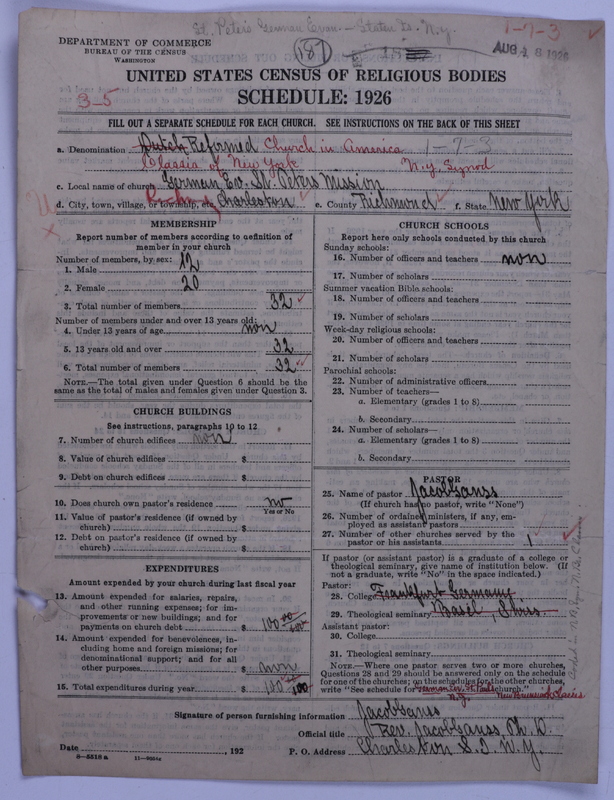 St. Peters German Evan — Staten Is. N.Y.
1-7-3
DEPARTMENT OF COMMERCE
BUREAU OF THE CENSUS
WASHINGTON
187
AUG 18 1926
UNITED STATES CENSUS OF RELIGIOUS BODIES
3-5
SCHEDULE: 1926
FILL OUT A SEPARATE SCHEDULE FOR EACH CHURCH. SEE INSTRUCTIONS ON THE BACK OF THIS SHEET
a. Denomination Dutch Reformed Church in America 1-7-3
Classis of New York N.Y. Synod
c. Local name of church German Ev. St. Peters Mission
d. City, town, village, or township, etc. Charleston e. County Richmond f. State New York
MEMBERSHIP
Report number of members according to definition of
member in your church
Number of members, by sex:
1. Male 12
2. Female 20
3. Total number of members 32
Number of members under and over 13 years old:
4. Under 13 years of age non
5. 13 years old and over 32
6. Total number of members 32
NOTE.—The total given under Question 6 should be
same as the total of males and females given under Question 3.
CHURCH BUILDINGS
See instructions, paragraphs 10 to 12
7. Number of church edifices non
8. Value of church edifices $
9. Debt on church edifices $
10. Does church own pastor's residence no
Yes or No
11. Value of pastor's residence (if owned by
church) $
12. Debt on pastor's residence (if owned by
church) $
EXPENDITURES
Amount expended by your church during last fiscal year
13. Amount expended for salaries, repairs,
and other running expenses; for im-
provements or new buildings; and for
payments on church debt $ 100
14. Amount expended for benevolences, in-
cluding home and foreign missions; for
denominational support; and for all
other purposes $ non
15. Total expenditures during year $ 100 100
CHURCH SCHOOLS
Report here only schools conducted by this church
Sunday schools:
16. Number of officers and teachers non
17. Number of scholars
Summer vacation Bible schools:
18. Number of officers and teachers
19. Number of scholars
Week-day religious schools:
20. Number of officers and teachers
21. Number of scholars
Parochial schools:
22. Number of administrative officers
23. Number of teachers—
a. Elementary (grades 1 to 8)
b. Secondary
24. Number of scholars—
a. Elementary (grades 1 to 8)
b. Secondary
PASTOR
25. Name of pastor Jacob Ganss
(If church has no pastor, write "None")
26. Number of ordained ministers, if any, em-
ployed as assistant pastors
27. Number of other churches served by the
pastor or his assistants 1
If pastor (or assistant pastor) is a graduate of a college or
theological seminary, give name of institution below. (If
not a graduate, write "No" in the space indicated.)
Pastor:
28. College Frankfurt Germany
29. Theological seminary Basel, Swiss
Assistant pastor:
30. College
31. Theological seminary
NOTE.—Where one pastor serves two or more churches,
Questions 28 and 29 should be answered only on the schedule
for one of the churches; on the schedules for the other churches
write "See schedule for German Ev. St. Pauls church."
N.J. New Brunswick Classis
Signature of person furnishing information Jacob Ganss
Official title Rev. Jacob Ganss, Ph. D.
Date , 192 P. O. Address Charleston S. I. N. Y.